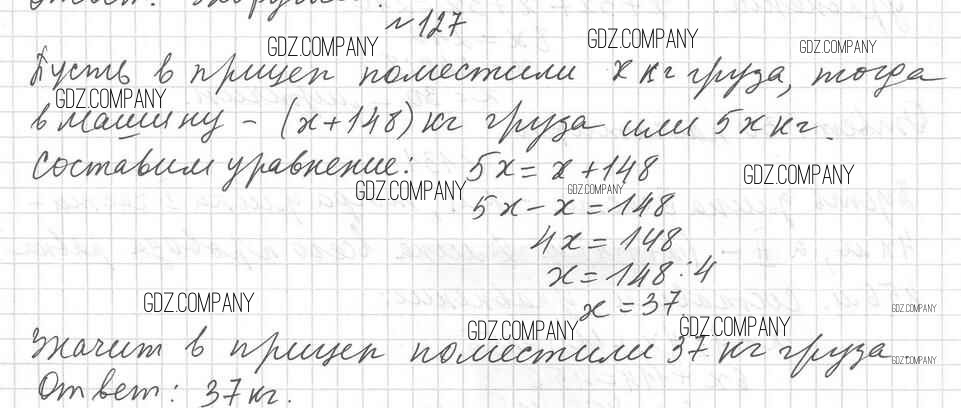 Ответ:
№127
Пусть в прицеп поместили x кг груза, тогда
в машину - (x+148) кг груза или 5x кг.
Составим уравнение: 5x = x + 148
5x - x = 148
4x = 148
x = 148 : 4
x = 37.
Значит в прицеп поместили 37 кг груза.
Ответ: 37 кг.
GDZ.COMPANY
GDZ.COMPANY
GDZ.COMPANY
GDZ.COMPANY
GDZ.COMPANY
GDZ.COMPANY
GDZ.COMPANY
GDZ.COMPANY
GDZ.COMPANY
GDZ.COMPANY
GDZ.COMPANY
GDZ.COMPANY